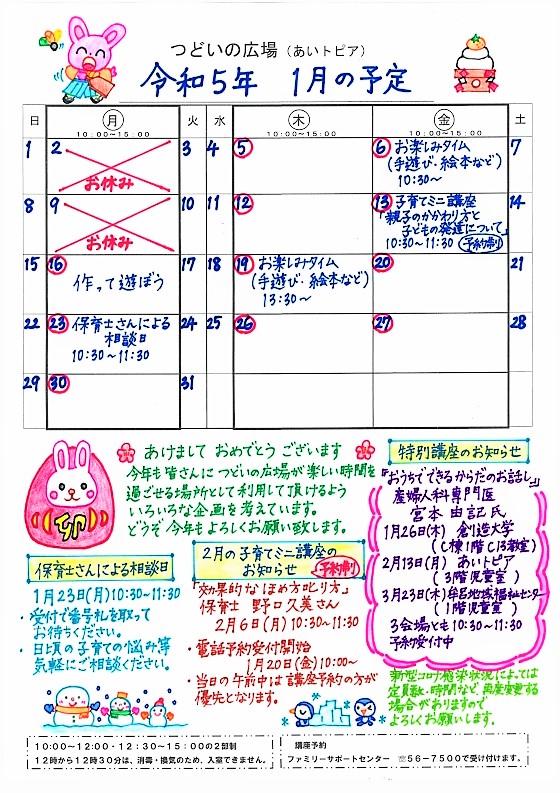 つどいの広場（あいトピア）
令和5年 1月の予定
日 月 火 水 木 金 土
10:00~15:00 10:00~15:00 10:00~15:00
1 2 お休み 3 4 5 6 お楽しみタイム 7
(手遊び・絵本など)
10:30〜
8 9 お休み 10 11 12 13 子育てミニ講座 14
「親子のかかわり方と
子どもの発達について」
10:30~11:30 予約制
15 16 作って遊ぼう 17 18 19 お楽しみタイム 20 21
(手遊び・絵本など)
13:30〜
22 23 保育士さんによる 24 25 26 27 28
相談日
10:30~11:30
29 30 31
あけまして おめでとう ございます
今年も皆さんに つどいの広場が楽しい時間を
過ごせる場所として利用して頂けるよう
いろいろな企画を考えています。
どうぞ今年もよろしくお願い致します。
卯
特別講座のお知らせ
『おうちでできるからだのお話し』
産婦人科専門医
宮本由記氏
1月26日(木) 創造大学
(C棟1階C13教室)
2月13日(月) あいトピア
(3階児童室)
3月23日(木)牟呂地域福祉センター
(1階児童室)
3会場とも10:30~11:30
予約受付中
保育士さんによる相談日
1月23日(月)10:30~11:30
・受付で番号札を取って
お待ちください。
・日頃の子育ての悩み等
気軽にご相談ください。
2月の子育てミニ講座の
お知らせ 予約制
「効果的なほめ方叱り方」
保育士 野口久美さん
2月6日(月)10:30~11:30
・電話予約受付開始
1月20日(金)10:00~
・当日の午前中は講座予約の方が
優先となります。
新型コロナ感染状況によっては
定員数・時間など、再度変更する
場合がありますので
よろしくお願いします。
10:00~12:00・12:30~15:00の2部制
12時から12時30分は、消毒・換気のため、入室できません。
講座予約
ファミリーサポートセンター ☏56-7500で受け付けます。